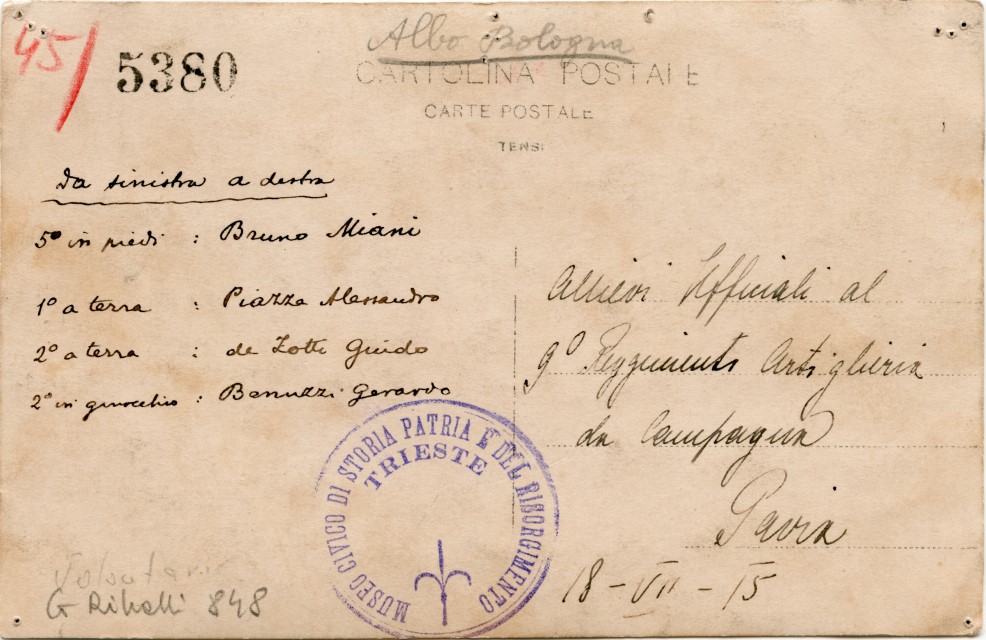 45/
5380
Albo Bologna
CARTOLINA POSTALE
CARTE POSTALE
TENSI
Da sinistra a destra
5º in piedi : Bruno Miani
1º a terra : Piazza Alessandro
2º a terra : de Zotti Guido
2º in ginocchio : Benuzzi Gerardo
Allievi Ufficiali al
9º Reggimento Artiglieria
da Campagna
Pavia
18-VII-15
MUSEO CIVICO DI STORIA PATRIA E DEL RISORGIMENTO
TRIESTE
G 848